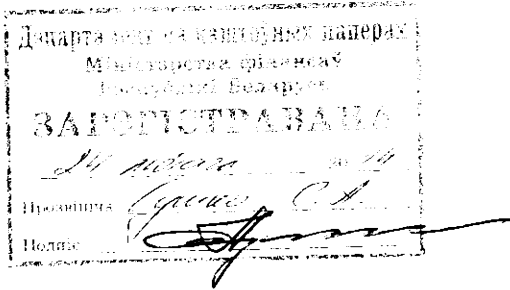 Дэпартамент па каштоўных паперах
Міністэрства фінансаў
Рэспублікі Беларусь
ЗАРЭГІСТРАВАНА
24 20 14
Прозвішча С. А.
Подпіс